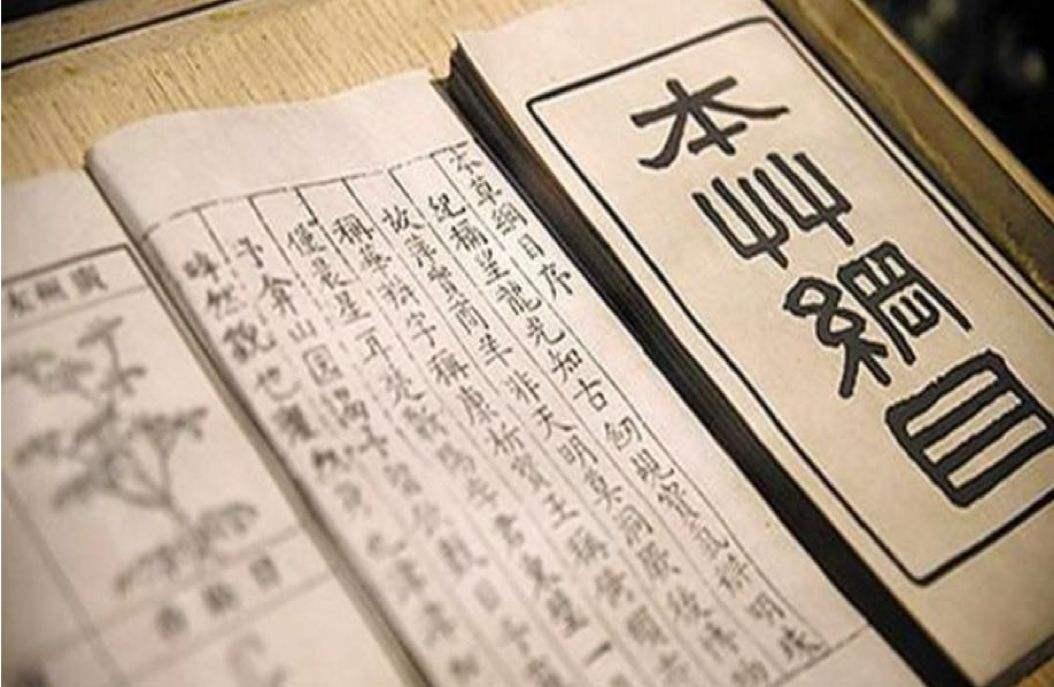 本艸綱目
本草綱目序
紀稱望龍光知古劒覘寶氣辨明珠
故萍實商羊非天明莫洞厥後博物
稱華辯字稱康析寶玉稱倚頓亦
僅晨星耳楚蘄陽李君東璧一
予弇山園謁予留飲數日予
睟然貌也癯然身也津津